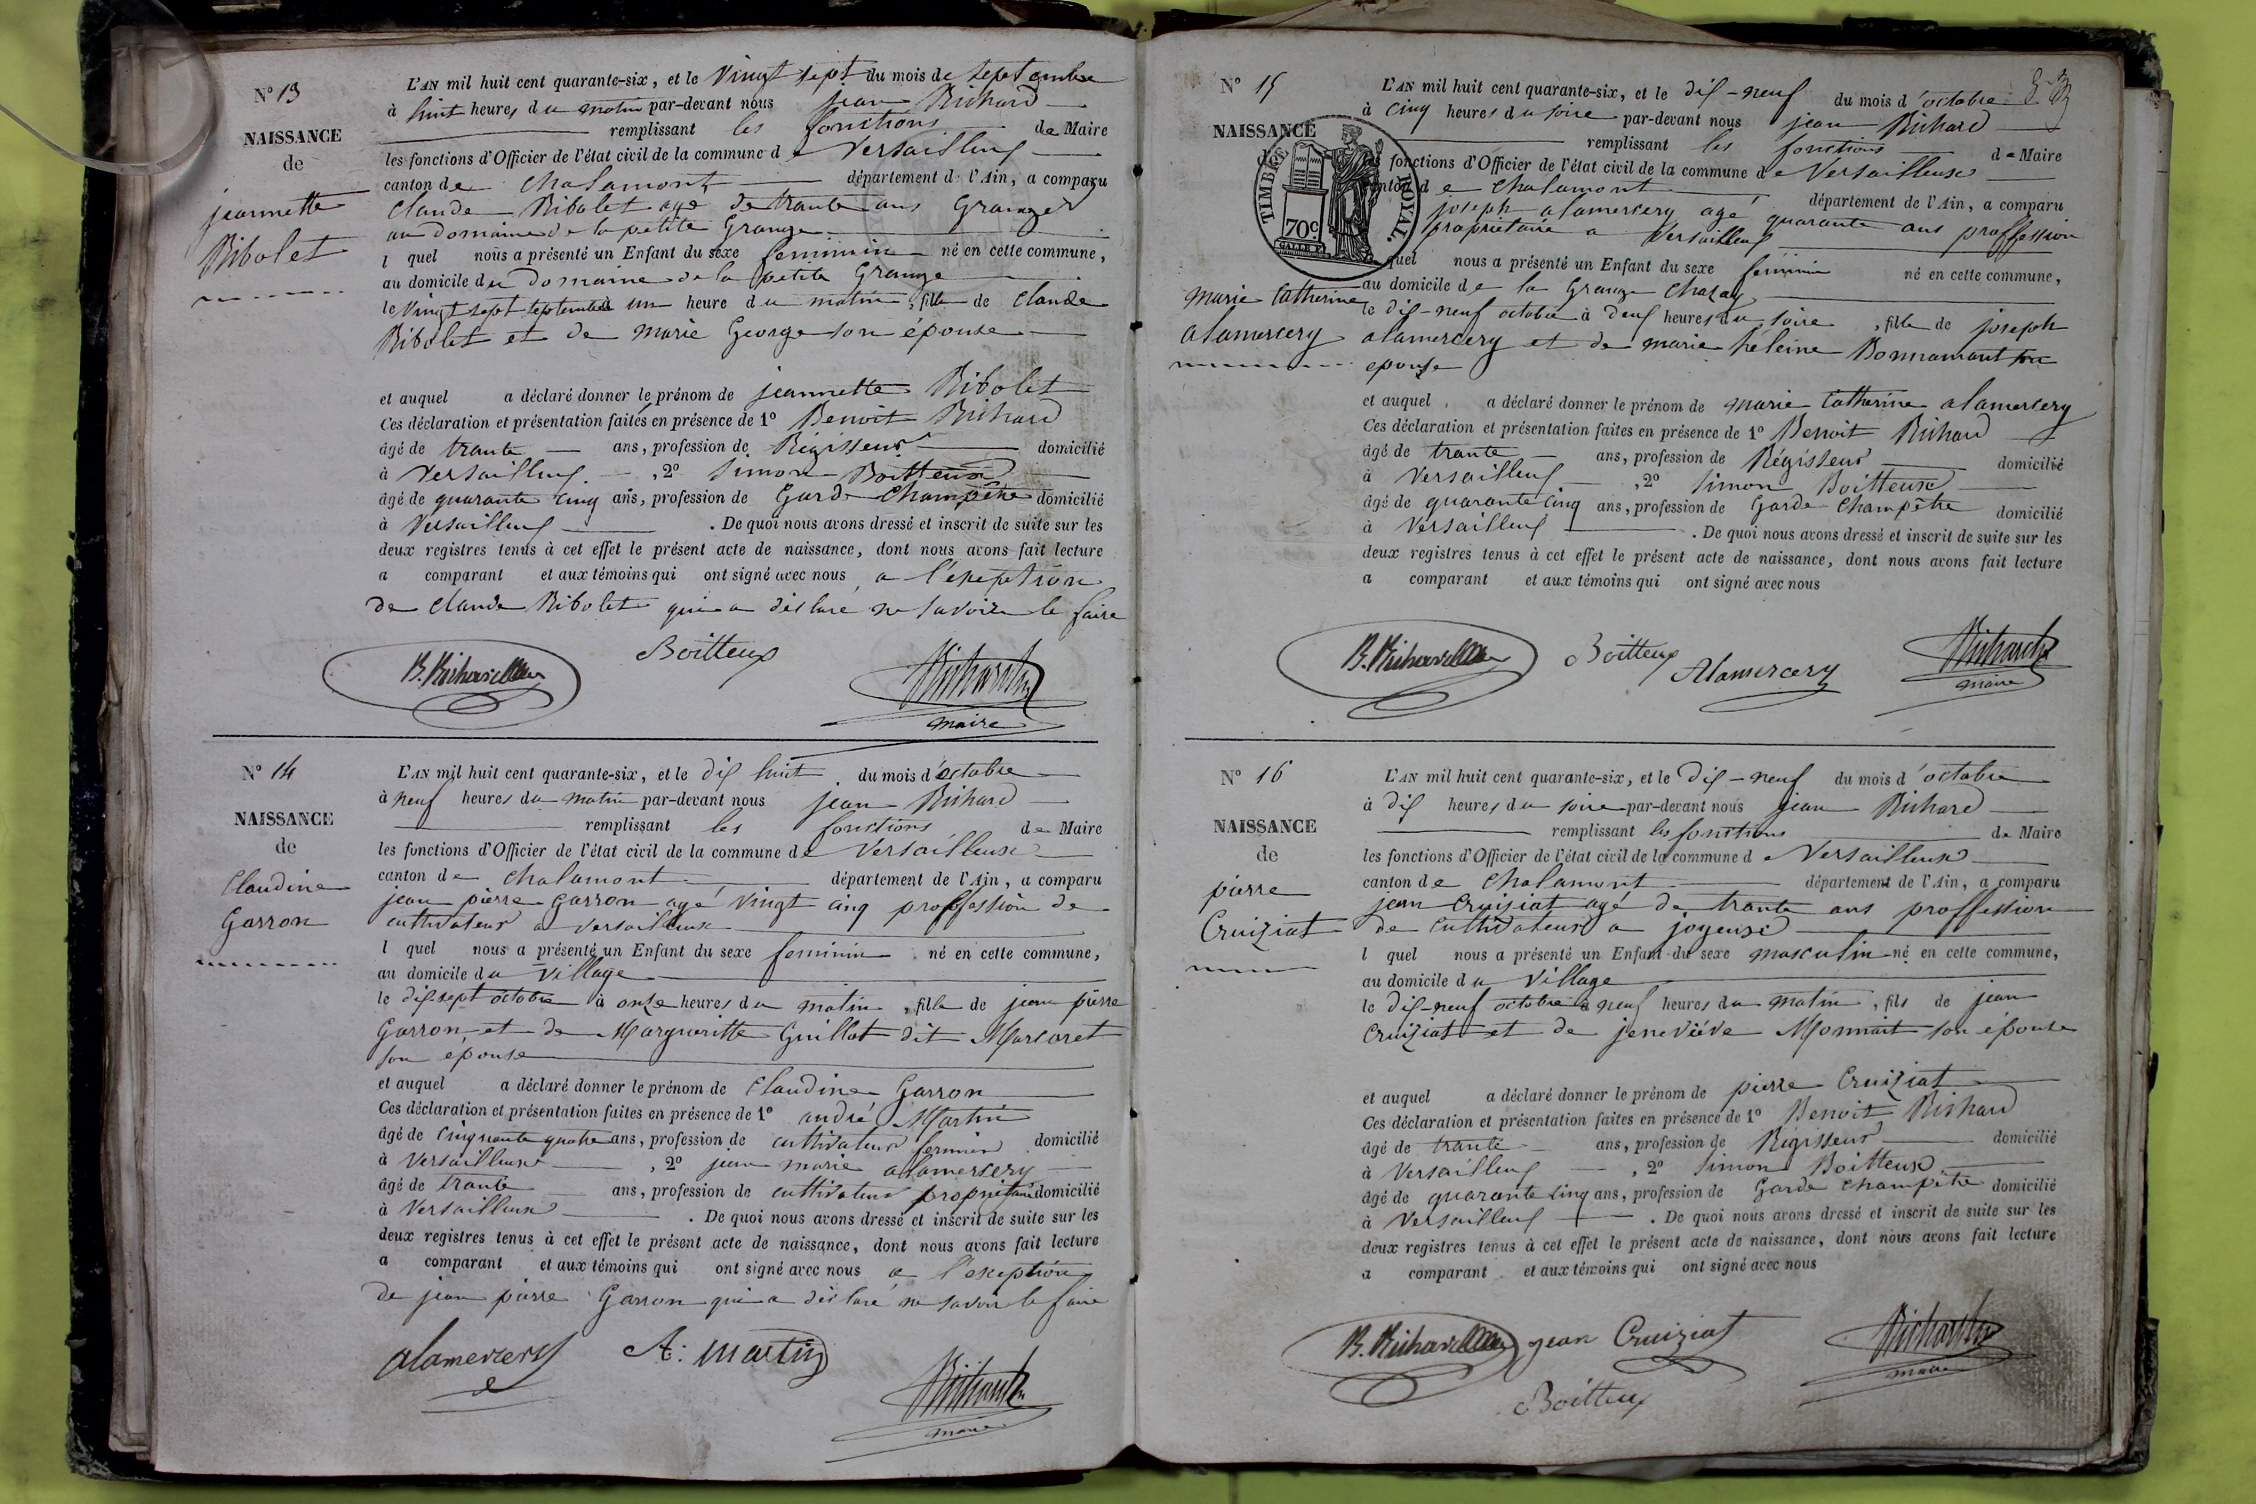 N° 13
NAISSANCE
de
jeannette
Ribolet
L'AN mil huit cent quarante-six, et le Vingt sept du mois de septembre
à huit heures du matin par-devant nous jean Richard
remplissant les fonctions de Maire
les fonctions d'Officier de l'état civil de la commune de Versailleux
canton de chalamont département de l'Ain, a comparu
Claude Ribolet agé de trante ans Granger
au domaine de la petite Grange
l quel nous a présenté un Enfant du sexe feminin né en cette commune,
au domicile du Domaine de la petite Grange
le Vingt sept septembre à un heure du matin, fille de Claude
Ribolet et de marie George son épouse
et auquel a déclaré donner le prénom de jeannette Ribolet
Ces déclaration et présentation faites en présence de 1° Benoit Richard
âgé de trante ans, profession de Régisseur domicilié
à Versailleux, 2° Simon Boitteux
âgé de quarante cinq ans, profession de Garde Champêtre domicilié
à Versailleux. De quoi nous avons dressé et inscrit de suite sur les
deux registres tenus à cet effet le présent acte de naissance, dont nous avons fait lecture
a comparant et aux témoins qui ont signé avec nous a l'exeption
de Claude Ribolet qui a déclaré ne savoir le faire
B. Richard
Boitteux
Richard
maire
N° 14
NAISSANCE
de
Claudine
Garron
L'AN mil huit cent quarante-six, et le dix huit du mois d'octobre
à neuf heures du matin par-devant nous jean Richard
remplissant les fonctions de Maire
les fonctions d'Officier de l'état civil de la commune de Versailleux
canton de chalamont département de l'Ain, a comparu
jean pierre Garron agé vingt cinq proffession de
cultivateur a versailleux
l quel nous a présenté un Enfant du sexe feminin né en cette commune,
au domicile du Village
le dix sept octobre à onze heures du matin, fille de jean pierre
Garron et de Margueritte Guillot dit Marcoret
son épouse
et auquel a déclaré donner le prénom de Claudine Garron
Ces déclaration et présentation faites en présence de 1° andré Martin
âgé de cinquante quatre ans, profession de cultivateur fermier domicilié
à Versailleux, 2° jean marie alamercery
âgé de trante ans, profession de cultivateur propriétaire domicilié
à Versailleux. De quoi nous avons dressé et inscrit de suite sur les
deux registres tenus à cet effet le présent acte de naissance, dont nous avons fait lecture
a comparant et aux témoins qui ont signé avec nous a l'exeption
de jean pierre Garron qui a déclaré ne savoir le faire
alamercery
A. martin
Richard
maire
N° 15
NAISSANCE
TIMBRE ROYAL.
70c
marie Catherine
alamercery
L'AN mil huit cent quarante-six, et le dix-neuf du mois d'octobre
à cinq heures du soire par-devant nous jean Richard
remplissant les fonctions de Maire
les fonctions d'Officier de l'état civil de la commune de Versailleux
canton de chalamont département de l'Ain, a comparu
joseph alamercery agé quarante ans proffession
propriétaire a Versailleux
quel nous a présenté un Enfant du sexe feminin né en cette commune,
au domicile de la Grange Chazay
le dix-neuf octobre à deux heures du soire, fille de joseph
alamercery et de marie heleine Bonnamant son
epouse
et auquel a déclaré donner le prénom de marie Catherine alamercery
Ces déclaration et présentation faites en présence de 1° Benoit Richard
âgé de trante ans, profession de Régisseur domicilié
à Versailleux, 2° Simon Boitteux
âgé de quarante cinq ans, profession de Garde Champêtre domicilié
à Versailleux. De quoi nous avons dressé et inscrit de suite sur les
deux registres tenus à cet effet le présent acte de naissance, dont nous avons fait lecture
a comparant et aux témoins qui ont signé avec nous
B. Richard
Boitteux
Alamercery
Richard
maire
N° 16
NAISSANCE
de
pierre
Cruiziat
L'AN mil huit cent quarante-six, et le Dix-neuf du mois d'octobre
à dix heures du soire par-devant nous jean Richard
remplissant les fonctions de Maire
les fonctions d'Officier de l'état civil de la commune de Versailleux
canton de chalamont département de l'Ain, a comparu
jean Cruiziat agé de trante ans proffession
de cultivateur a joyeux
l quel nous a présenté un Enfant du sexe masculin né en cette commune,
au domicile du Village
le dix-neuf octobre à neuf heures du matin, fils de jean
Cruiziat et de jeneviève Monnait son épouse
et auquel a déclaré donner le prénom de pierre Cruiziat
Ces déclaration et présentation faites en présence de 1° Benoit Richard
âgé de trante ans, profession de Régisseur domicilié
à Versailleux, 2° Simon Boitteux
âgé de quarante cinq ans, profession de Garde Champêtre domicilié
à Versailleux. De quoi nous avons dressé et inscrit de suite sur les
deux registres tenus à cet effet le présent acte de naissance, dont nous avons fait lecture
a comparant et aux témoins qui ont signé avec nous
B. Richard
jean Cruiziat
Richard
maire
Boitteux